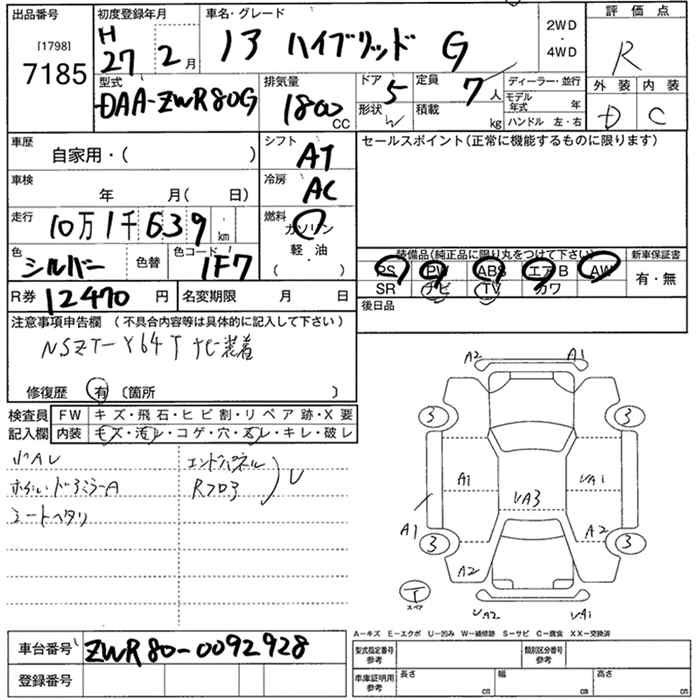 出品番号 初度登録年月 車名・グレード 2WD・4WD 評価点
[1798] 7185 H 27年 2月 ノア ハイブリッド G R
型式 DAA-ZWR80G 排気量 1800 CC ドア 5 形状 W 定員 7人 積載 kg ディーラー・並行 モデル年式 年 ハンドル 左・右 外装 D 内装 C
車歴 自家用・( ) シフト AT セールスポイント(正常に機能するものに限ります)
車検 年 月( 日) 冷房 AC
走行 10万1千639 km 燃料 ガソリン 軽・油 ( ・ )
色 シルバー 色替 色コード 1F7
装備品(純正品に限り丸をつけて下さい) 新車保証書
PS PW ABS エアB AW 有・無
SR ナビ TV カワ
R券 12470 円 名変期限 月 日 後日品
注意事項申告欄 (不具合内容等は具体的に記入して下さい)
NSZT-Y64T ナビ装着
修復歴 有 〔箇所 〕
検査員記入欄 FW キズ・飛石・ヒビ割・リペア跡・X要
内装 キズ・汚レ・コゲ・穴・スレ・キレ・破レ
小AU エンドパネル
ホイル・ドアミラーA Rフロア U
シートヘタリ
A2 A1
3 3
A1 UA1
UA3
A1 A2
3 3
A2
T スペア
UA2 UA1
A-キズ E-エクボ U-凹み W-補修跡 S-サビ C-腐食 XX-交換済
車台番号 ZWR80-0092928 型式指定番号 参考 類別区分番号 参考
登録番号 車庫証明用 参考 長さ cm 幅 cm 高さ cm